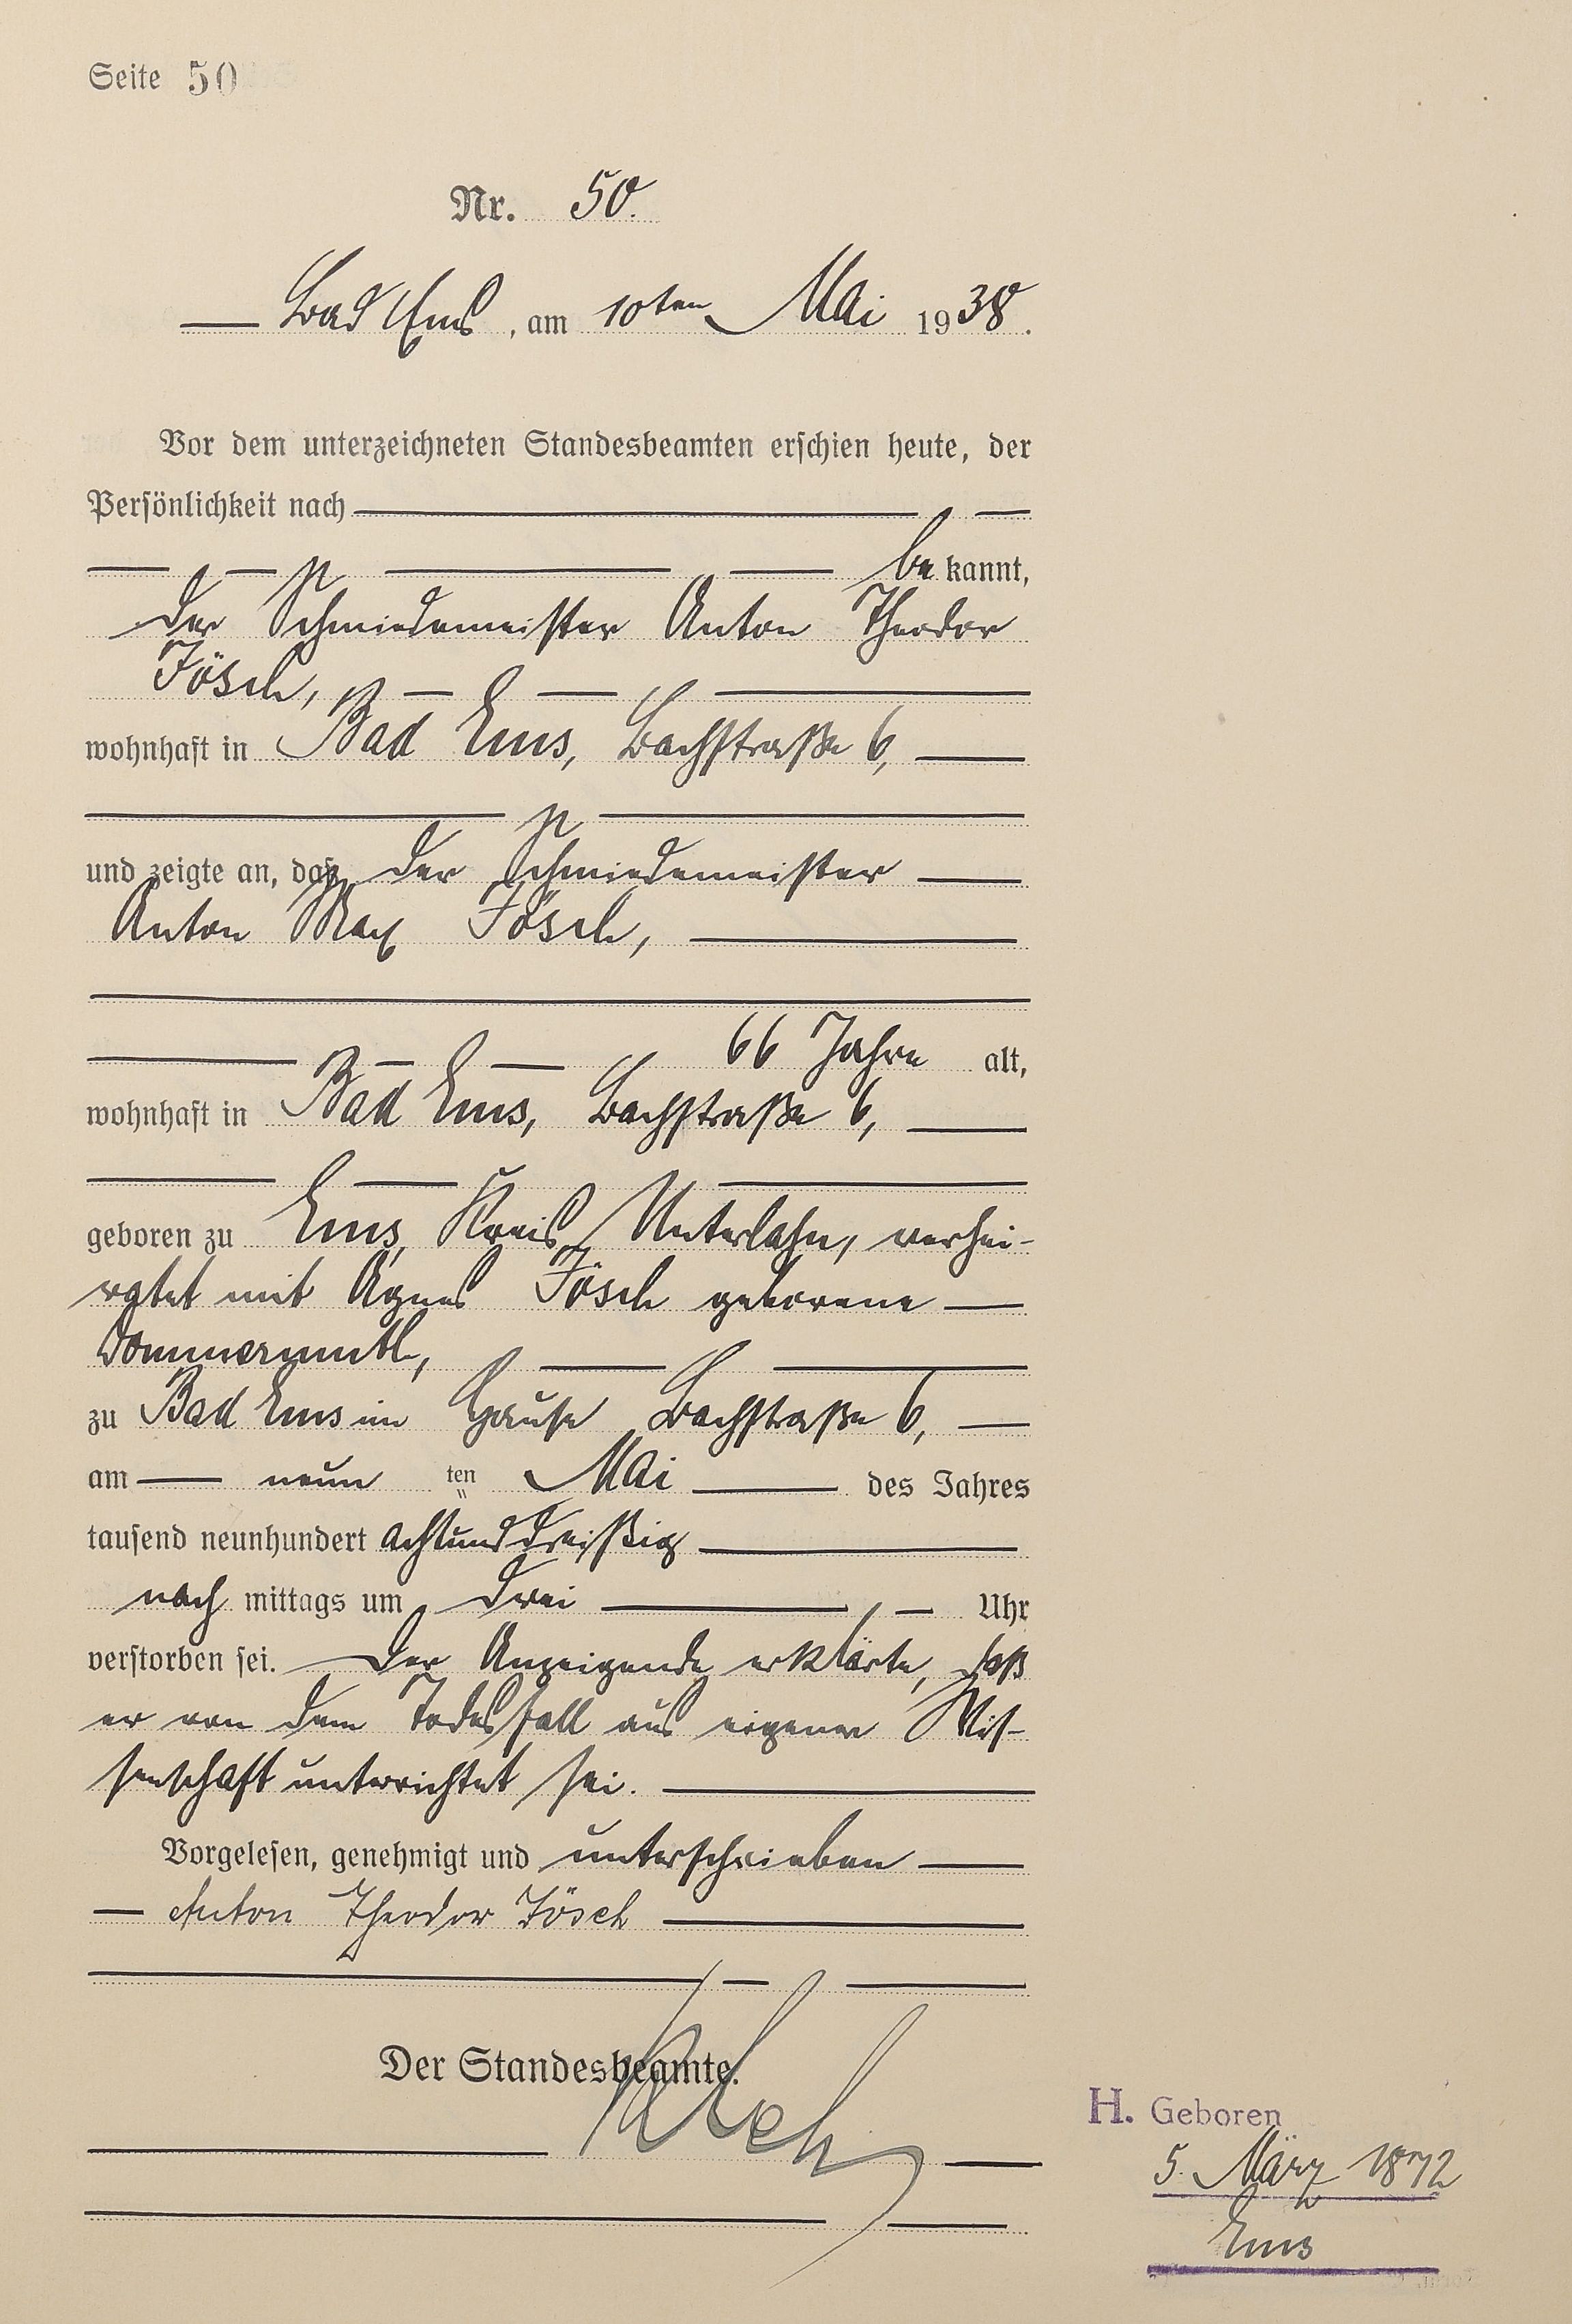 Seite 50
Nr. 50.
Bad Ems, am 10ten Mai 1938.
Vor dem unterzeichneten Standesbeamten erschien heute, der
Persönlichkeit nach
be kannt,
der Schmiedemeister Anton Theodor
Jösch,
wohnhaft in Bad Ems, Bachstraße 6,
und zeigte an, daß der Schmiedemeister
Anton Max Jösch,
66 Jahre alt,
wohnhaft in Bad Ems, Bachstraße 6,
geboren zu Ems, Kreis Unterlahn, verhei-
ratet mit Agnes Jösch geborene
Dommermuth,
zu Bad Ems im Hause Bachstraße 6,
am neun ten Mai des Jahres
tausend neunhundert achtunddreißig
nach mittags um drei Uhr
verstorben sei. Der Anzeigende erklärte, daß
er von dem Todesfall aus eigener Wis-
senschaft unterrichtet sei.
Vorgelesen, genehmigt und unterschrieben
Anton Theodor Jösch
Der Standesbeamte.
H. Geboren
5. März 1872
Ems